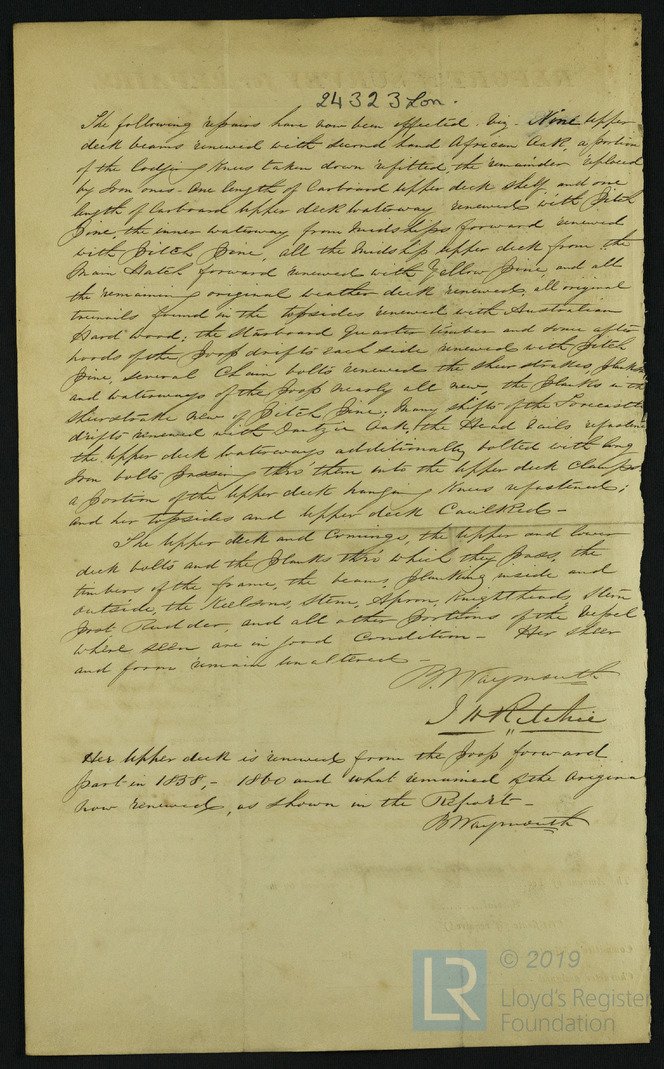 24323 Lon.
The following repairs have now been effected. viz - Nine Upper
deck beams renewed with second hand African Oak, a portion
of the Lodging Knees taken down refitted, the remainder replaced
by Iron ones - One length of Larboard Upper deck shelf, and one
length of Larboard Upper deck Waterway renewed with Pitch
Pine, the inner waterway from Midships forward renewed
with Pitch Pine, all the Midship Upper deck from the
Main Hatch forward renewed with Yellow Pine, and all
the remaining original weather deck renewed, all original
treenails found in the topsides renewed with Australian
Hard Wood; the Starboard Quarter timber and some after
hoods of the Poop drifts each side renewed with Pitch
Pine, several Chain bolts renewed the sheerstrakes, planks
and waterways of the Poop nearly all new the planks in the
sheerstrake new of Pitch Pine; Many shifts of the Forecastle
drifts renewed with Dantzic Oak; the Head rails refastened
the Upper deck waterways additionally bolted with long
Iron bolts passing thro them into the Upper deck Clamps,
a portion of the Upper deck hanging Knees refastened;
and her topsides and Upper deck Caulked -
The Upper deck and Comings, the Upper and lower
deck bolts and the planks thro' which they pass, the
timbers of the frame, the beams, planking inside and
outside, the Keelsons, Stem, Apron, Knightheads, Stern
Post Rudder, and all other portions of the Vessel
where seen are in good Condition - Her sheer
and form remain unaltered -
B. Waymouth
J H Ritchie
Her Upper deck is renewed from the poop forward
part in 1858, - 1860 and what remained of the Original
now renewed, as shown in the Report -
B Waymouth
© 2019
LR
Lloyd's Register
Foundation